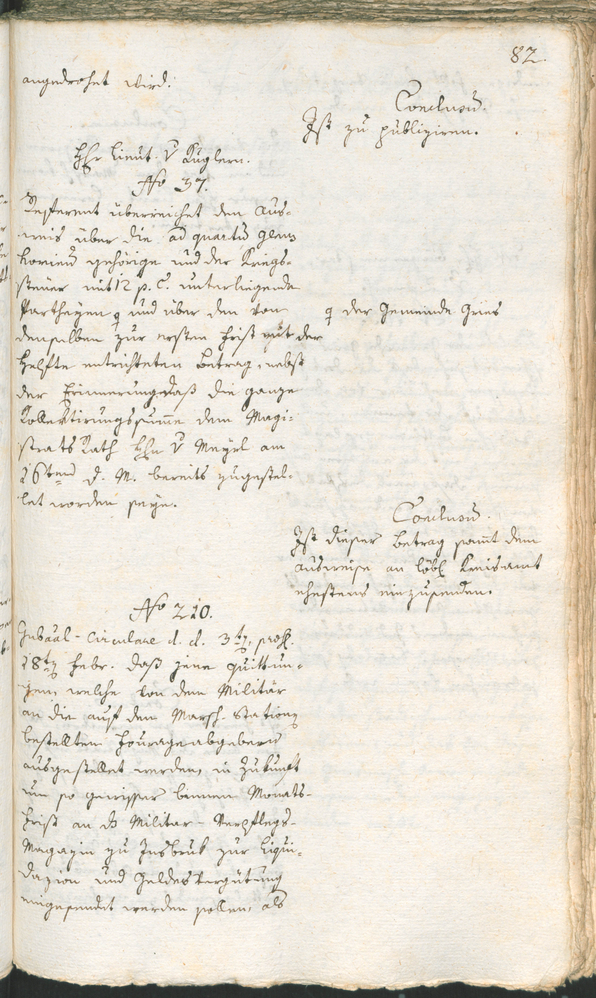 82.
angedrohet wird.
Conclusum.
Ist zu publiziren.
Hr. Lieut. v Kuglern.
No 37.
Referent überreichet den Aus-
weis über die ad quartum
gehörige und der Kriegs-
steuer mit 12 p. C. unterliegende
Partheyen und über den von
der Gemeinde Gries
denselben zur ersten Frist mit der
Helfte entrichteten Betrag, nebst
der Erinnerung, daß die ganze
Kollektirungssume dem Magi-
strats Rath Hrn v Mayrl am
16ten d. M. bereits zugestel-
let worden seye.
Conclusum.
Ist dieser Betrag samt dem
Ausweise an löbl. Kreisamt
ehestens einzusenden.
No 210.
Gubäal-Circulare d. d. 3ten, pros.
18ten Febr. daß jene Quittun-
gen, welche von dem Militär
an die auf den Marsch-Stationen
bestellten Fourageabgebern
ausgestellet werden, in Zukunft
um so gewisser binnen Monats-
frist an das Militar-Verpflegs-
Magazin zu Insbruk zur Liqui-
dazion und Geldesvergütung
eingesendet werden sollen, als